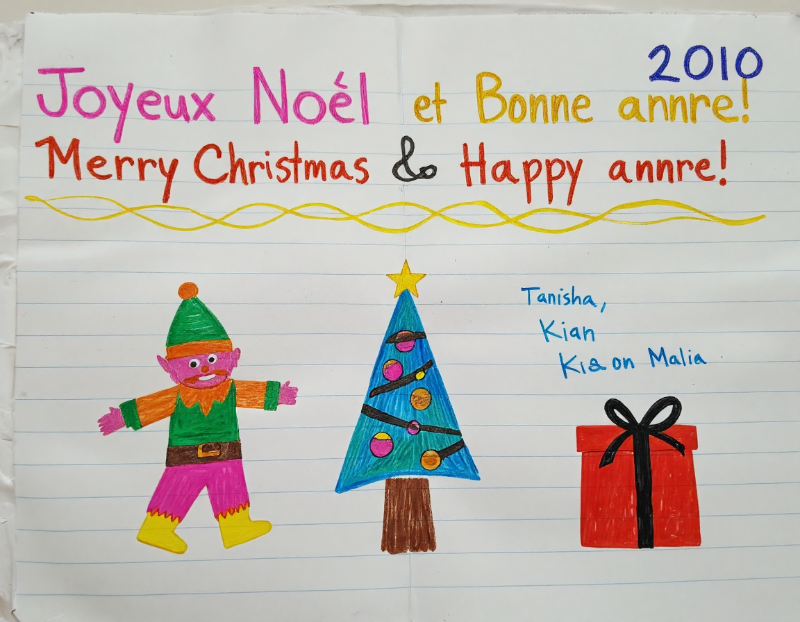 2010
Joyeux Noél et Bonne annre!
Merry Christmas & Happy annre!
Tanisha,
Kian
on Malia